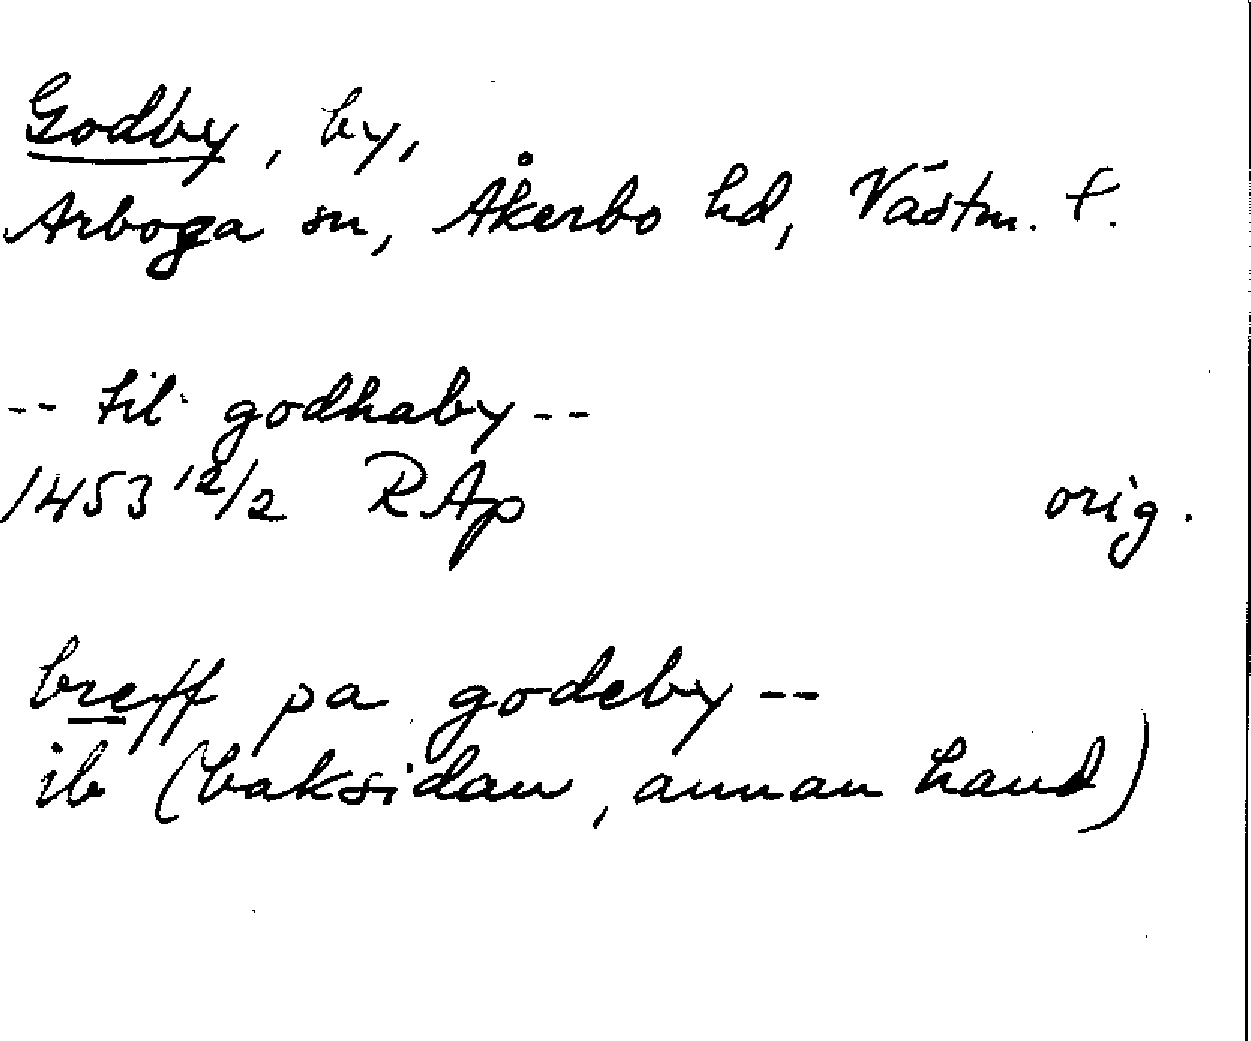 Godby, by,
Arboga sn, Åkerbo hd, Västm. f.
-- til godhaby --
1453 12/2 RAp orig.
breff pa godeby --
ib (baksidan, annan hand)